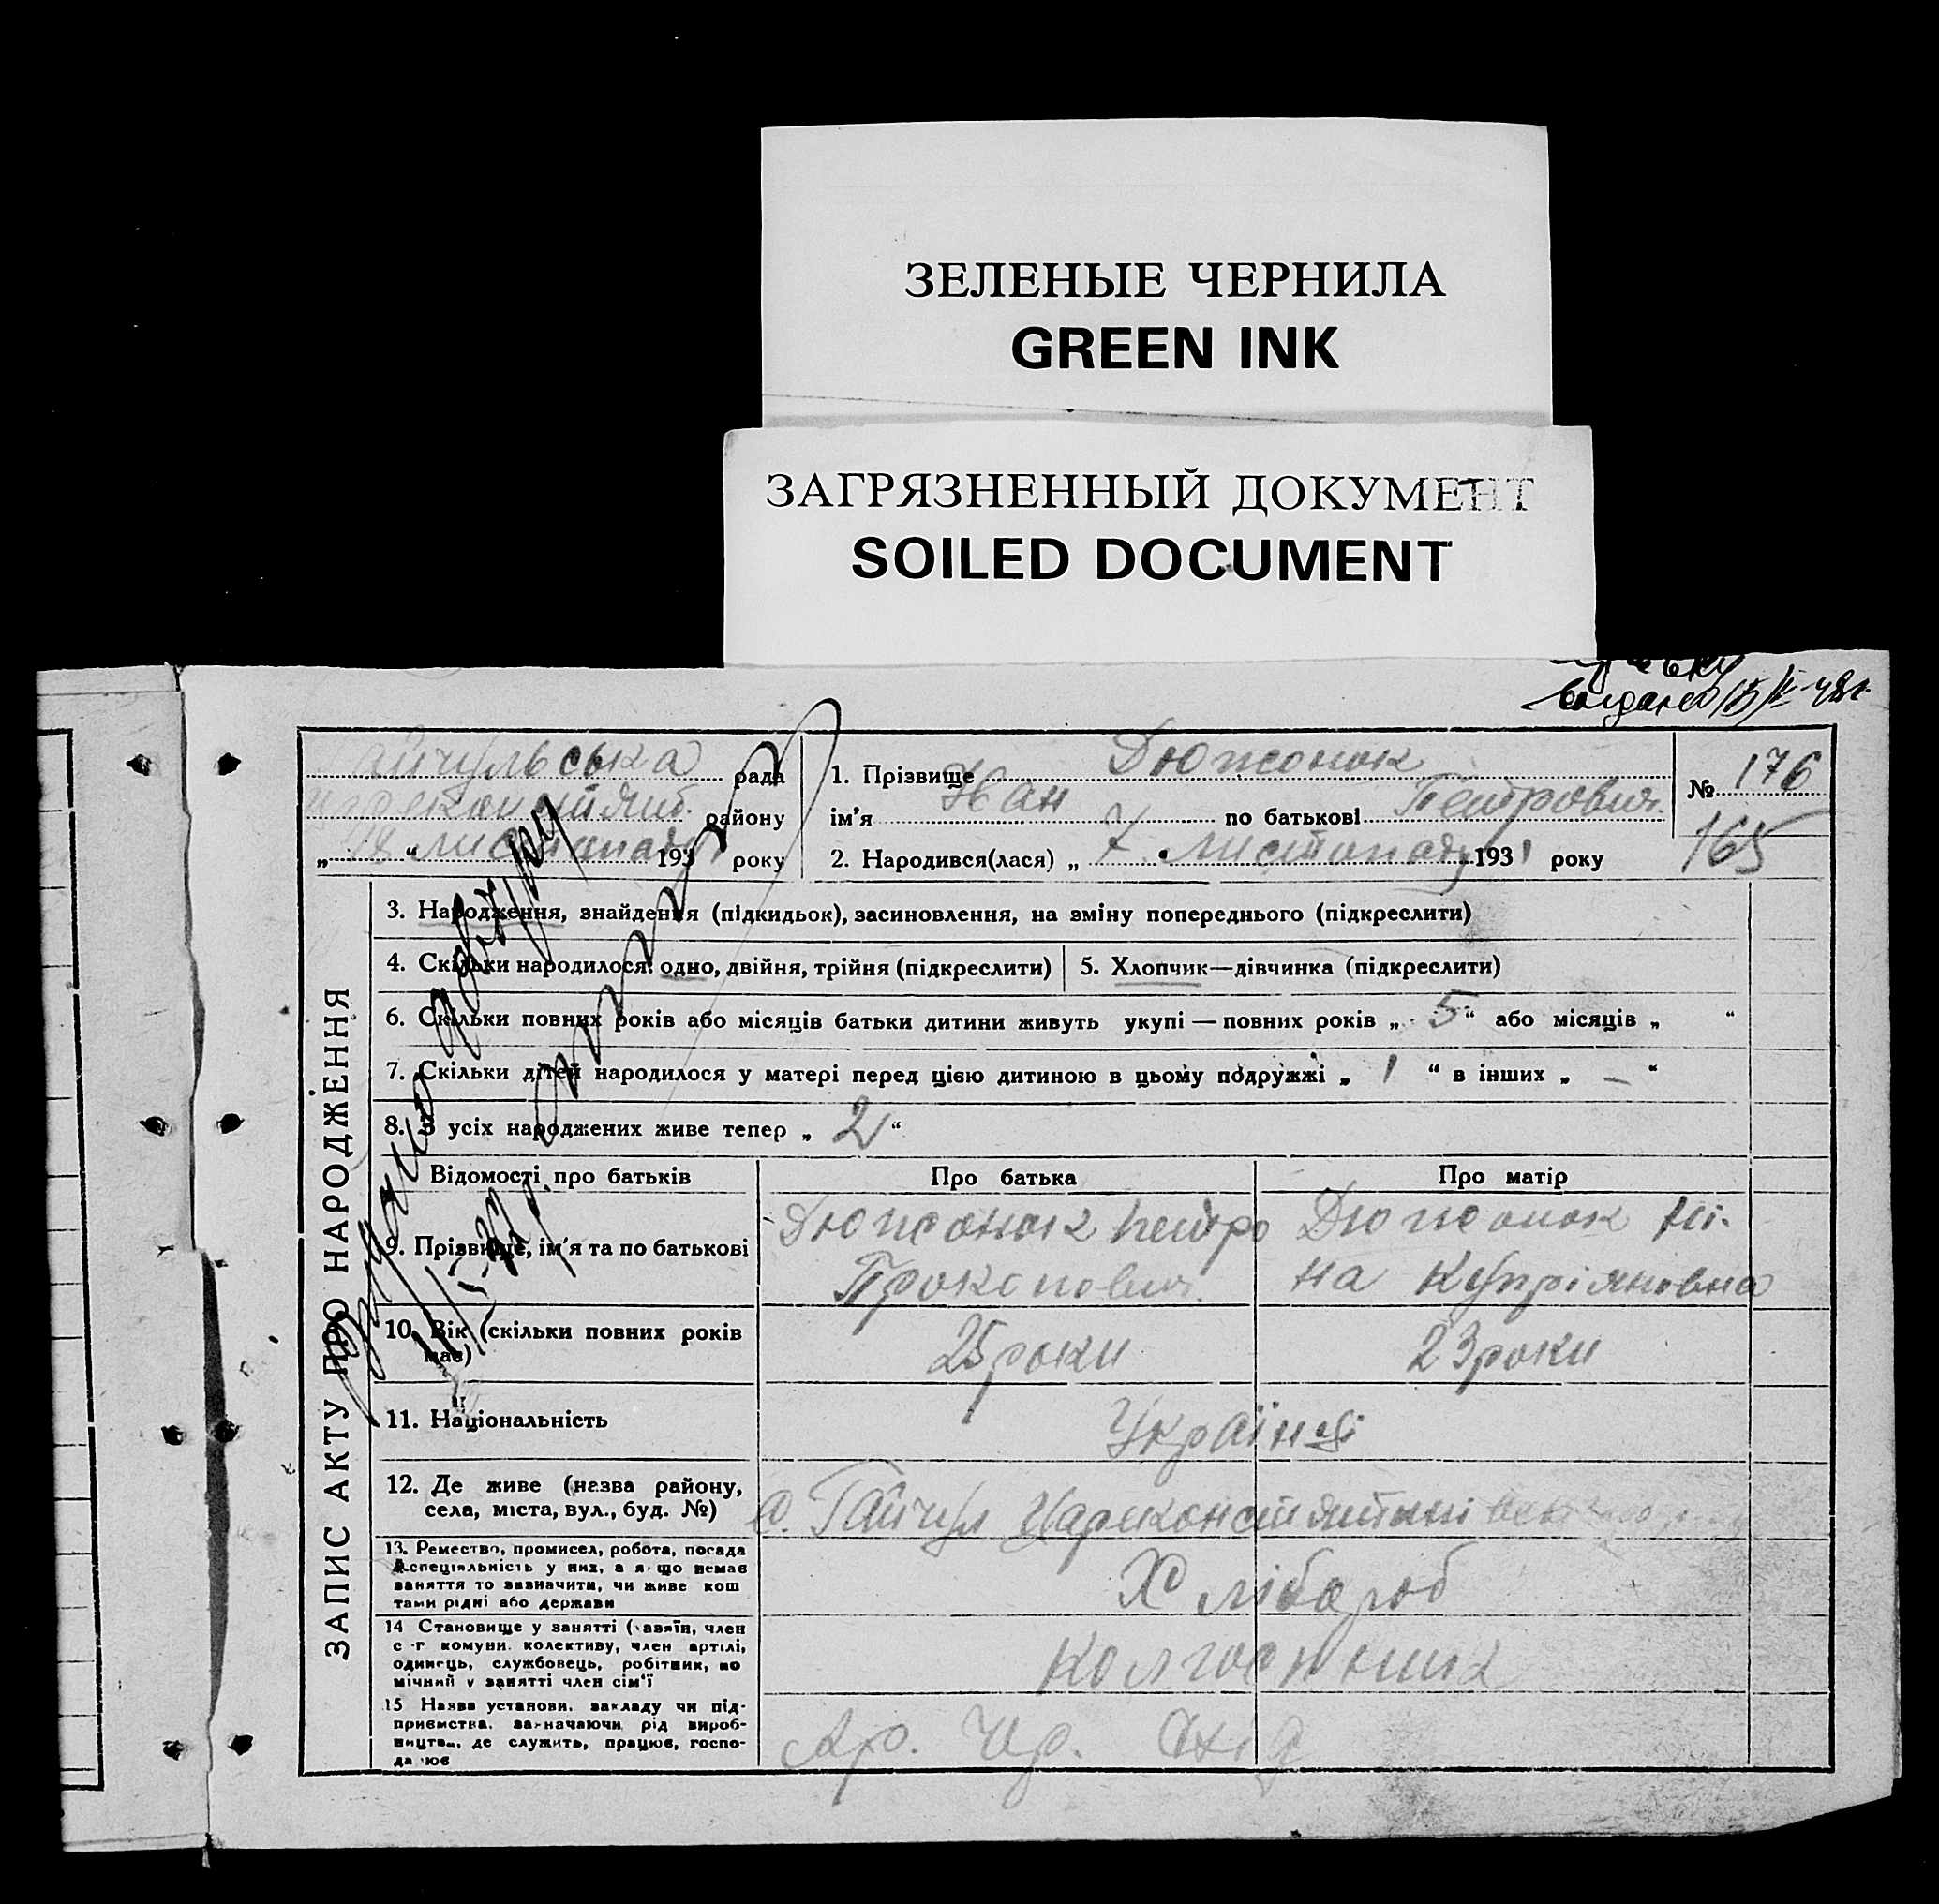 ЗЕЛЕНЫЕ ЧЕРНИЛА
GREEN INK
ЗАГРЯЗНЕННЫЙ ДОКУМЕНТ
SOILED DOCUMENT
15/ 48г.
айчульська рада
району
„18“ листопада 1931 року
1. Прізвище Дюжонок
ім'я Іван по батькові Петрович
2. Народився(лася) „ 7 листопада 1931 року
№ 176
165
ЗАПИС АКТУ ПРО НАРОДЖЕННЯ
3. Народження, знайдення (підкидьок), засиновлення, на зміну попереднього (підкреслити)
4. Скільки народилося: одно, двійня, трійня (підкреслити)
5. Хлопчик—дівчинка (підкреслити)
6. Скільки повних років або місяців батьки дитини живуть укупі — повних років „ 5 “ або місяців „ “
7. Скільки дітей народилося у матері перед цією дитиною в цьому подружжі „ 1 “ в інших „ — “
8. З усіх народжених живе тепер „ 2 “
Відомості про батьків
Про батька
Про матір
9. Прізвище, ім'я та по батькові
Дюжонок Петро
Прокопович
Дюжонок Ні-
на Купріяновна
10. Вік (скільки повних років
має)
25 роки
23 роки
11. Національність
Українці
12. Де живе (назва району,
села, міста, вул., буд. №)
с. Гайчул Цареконстянтинівськ
13. Ремество, промисел, робота, посада
й спеціяльність у них, а якщо немає
заняття то зазначити, чи живе кош
тами рідні або держави
Хлібороб
14 Становище у занятті (хазяїн, член
с-г комуни, колективу, член артілі,
одинець, службовець, робітник, по
мічний у занятті член сім'ї
Колгоспник
15 Назва установи, закладу чи під-
приємства, зазначаючи рід вироб-
ництва, де служить, працює, госпо-
дарює
Ар. Чр. Схід